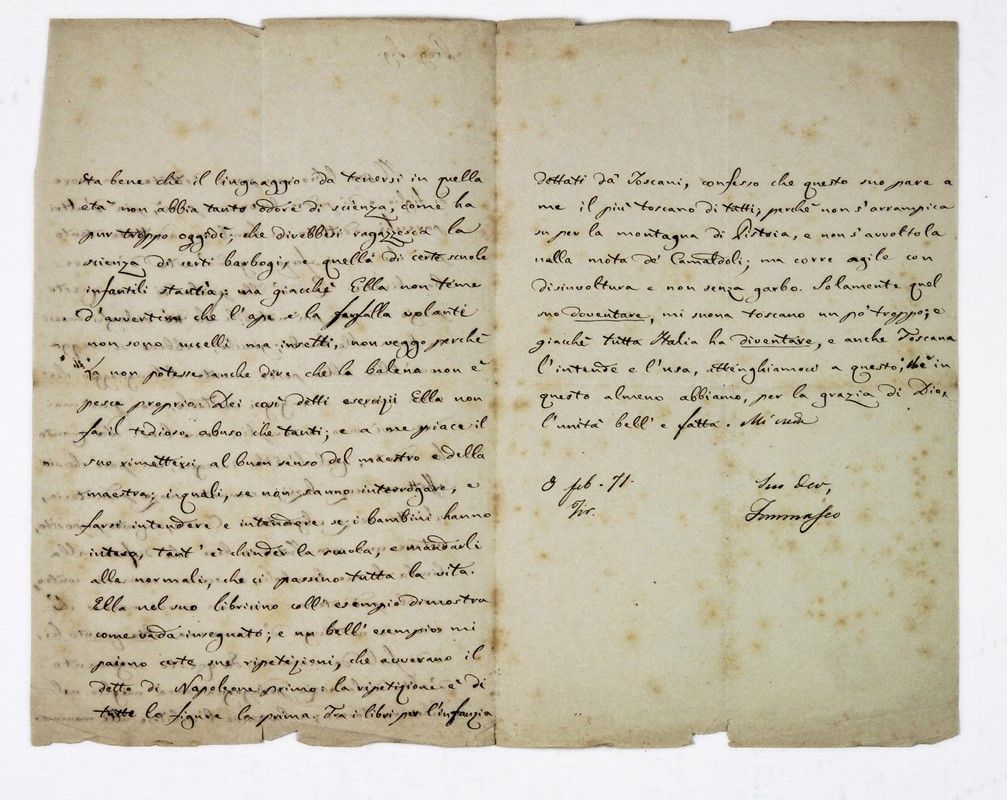 Sta bene che il linguaggio da tenersi in quella
età non abbia tanto odore di scienza, come ha
pur troppo oggidì; che direbbesi ragazzesca la
scienza di certi barbogi, e quella di certe scuole
infantili stantìa; ma giacché Ella non teme
d'avvertire che l'ape e la farfalla volanti
non sono uccelli ma insetti, non veggo perché
non potesse anche dire che la balena non è
pesce proprio. Dei così detti esercizii Ella non
fa il tedioso abuso che tanti; e a me piace il
suo rimettersi al buon senso del maestro e della
maestra; i quali, se non sanno interrogare, e
farsi intendere e intendere se i bambini hanno
inteso, tant' è chiuder la scuola, e mandarli
alle normali, che ci passino tutta la vita.
Ella nel suo libricino coll' esempio dimostra
come vada insegnato; e un bell' esempio mi
paiono certe sue ripetizioni, che avverano il
detto di Napoleone primo: la ripetizione è di
tutte le figure la prima. Tra i libri per l'infanzia
dettati da' Toscani, confesso che questo suo pare a
me il più toscano di tutti; perché non s'arrampica
su per la montagna di Pistoia, e non s'avvoltola
nella mota de' Camaldoli; ma corre agile con
disinvoltura e non senza garbo. Solamente quel
suo doventare, mi suona toscano un po' troppo; e
giacché tutta Italia ha diventare, e anche Toscana
l'intende e l'usa, attenghiamoci a questo; che in
questo almeno abbiamo, per la grazia di Dio,
l'unità bell' e fatta. Mi creda
8 feb. 71.
Fir.
Suo dev.
Tommaseo